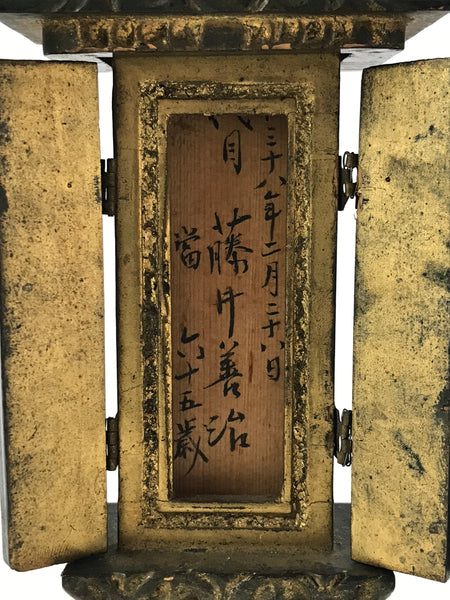 三十八年二月二十八日
月 藤井善治
當 六十五歳